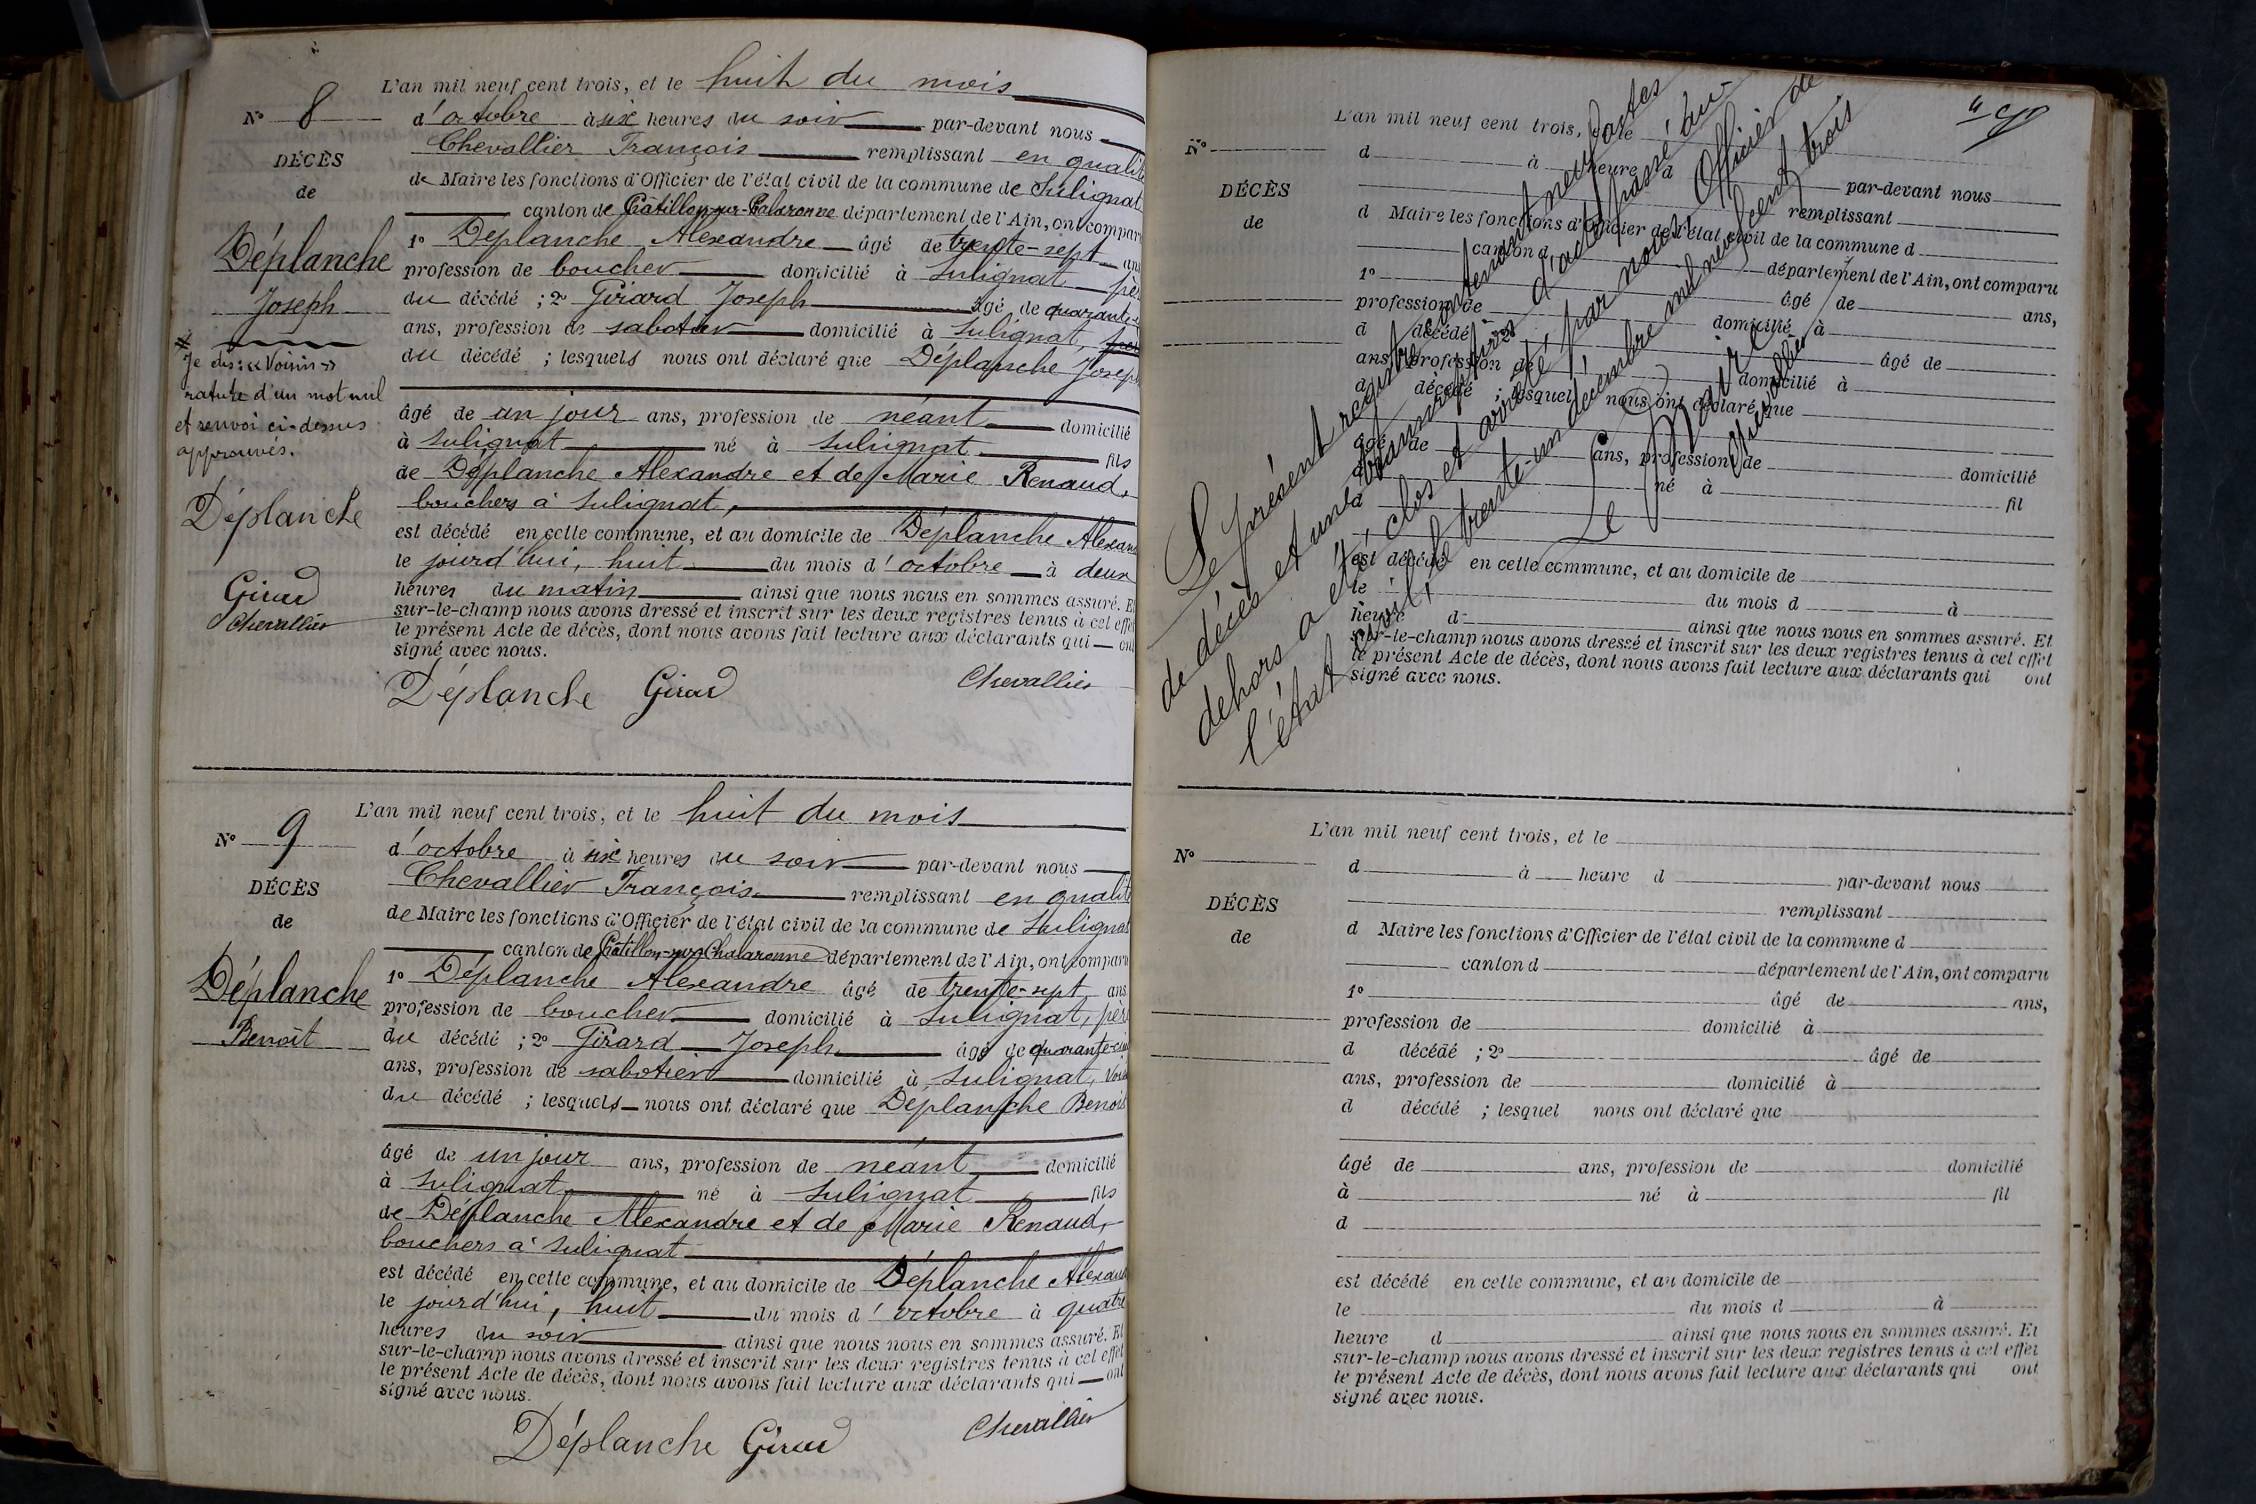 L'an mil neuf cent trois, et le huit du mois
N° 8
d'octobre à six heures du soir par-devant nous
Chevallier François remplissant en qualité
DÉCÈS
de Maire les fonctions d'Officier de l'état civil de la commune de Sulignat
de
canton de Châtillon-sur-Chalaronne département de l'Ain, ont comparu
Déplanche
1° Déplanche Alexandre âgé de trente-sept ans
profession de boucher domicilié à Sulignat père
Joseph
du décédé ; 2° Girard Joseph âgé de quarante-
ans, profession de sabotier domicilié à Sulignat,
du décédé ; lesquels nous ont déclaré que Déplanche Joseph
Je dis: «Voisin»
rature d'un mot nul
et renvoi ci-dessus
approuvés.
âgé de un jour ans, profession de néant domicilié
à Sulignat né à Sulignat fils
de Déplanche Alexandre et de Marie Renaud,
bouchers à Sulignat,
Déplanche
est décédé en cette commune, et au domicile de Déplanche Alexan
le jourd'hui, huit du mois d'octobre à deux
Girard
heures du matin ainsi que nous nous en sommes assuré. Et
Chevallier
sur-le-champ nous avons dressé et inscrit sur les deux registres tenus à cet effet
le présent Acte de décès, dont nous avons fait lecture aux déclarants qui ont
signé avec nous.
Déplanche Girard Chevallier
L'an mil neuf cent trois, et le huit du mois
N° 9
d'octobre à six heures du soir par-devant nous
Chevallier François remplissant en qualité
DÉCÈS
de Maire les fonctions d'Officier de l'état civil de la commune de Sulignat
de
canton de Châtillon-sur-Chalaronne département de l'Ain, ont comparu
Déplanche
1° Déplanche Alexandre âgé de trente-sept ans
profession de boucher domicilié à Sulignat, père
Benoît
du décédé ; 2° Girard Joseph âgé de quarante-cinq
ans, profession de sabotier domicilié à Sulignat, voisin
du décédé ; lesquels nous ont déclaré que Déplanche Benoît
âgé de un jour ans, profession de néant domicilié
à Sulignat né à Sulignat fils
de Déplanche Alexandre et de Marie Renaud,
bouchers à Sulignat
est décédé en cette commune, et au domicile de Déplanche Alexan
le jourd'hui, huit du mois d'octobre à quatre
heures du soir ainsi que nous nous en sommes assuré. Et
sur-le-champ nous avons dressé et inscrit sur les deux registres tenus à cet effet
le présent Acte de décès, dont nous avons fait lecture aux déclarants qui ont
signé avec nous.
Déplanche Girard Chevallier
L'an mil neuf cent trois, et le
N°
d à heure d par-devant nous
remplissant
DÉCÈS
d Maire les fonctions d'Officier de l'état civil de la commune d
de
canton d département de l'Ain, ont comparu
1° âgé de ans,
profession de domicilié à
d décédé ; 2° âgé de
ans, profession de domicilié à
d décédé ; lesquel nous ont déclaré que
âgé de ans, profession de domicilié
à né à fil
d
est décédé en cette commune, et au domicile de
le du mois d à
heure d ainsi que nous nous en sommes assuré. Et
sur-le-champ nous avons dressé et inscrit sur les deux registres tenus à cet effet
le présent Acte de décès, dont nous avons fait lecture aux déclarants qui ont
signé avec nous.
Le présent registre contenant neuf actes
de décès et un d'acte passé au-
dehors a été clos et arrêté par nous, Officier de
l'état civil, le trente-un décembre mil neuf cent trois
Le Maire
Chevallier
L'an mil neuf cent trois, et le
N°
d à heure d par-devant nous
remplissant
DÉCÈS
d Maire les fonctions d'Officier de l'état civil de la commune d
de
canton d département de l'Ain, ont comparu
1° âgé de ans,
profession de domicilié à
d décédé ; 2° âgé de
ans, profession de domicilié à
d décédé ; lesquel nous ont déclaré que
âgé de ans, profession de domicilié
à né à fil
d
est décédé en cette commune, et au domicile de
le du mois d à
heure d ainsi que nous nous en sommes assuré. Et
sur-le-champ nous avons dressé et inscrit sur les deux registres tenus à cet effet
le présent Acte de décès, dont nous avons fait lecture aux déclarants qui ont
signé avec nous.